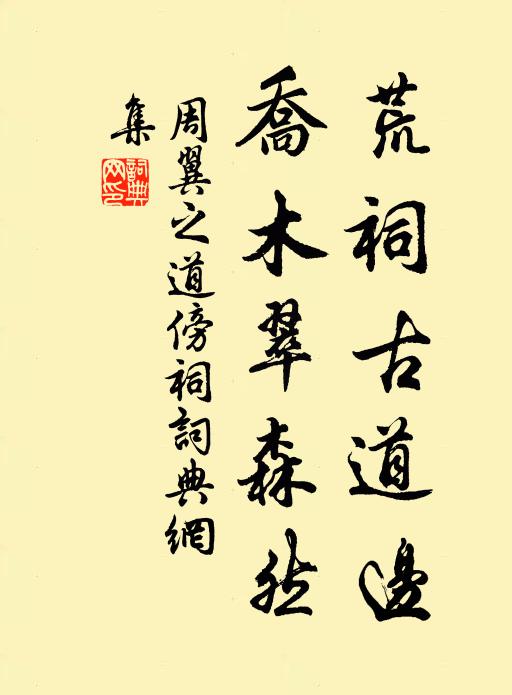 荒祠古道邊
喬木翠森然
周翼之道傍祠詞典網
集
詞典網印